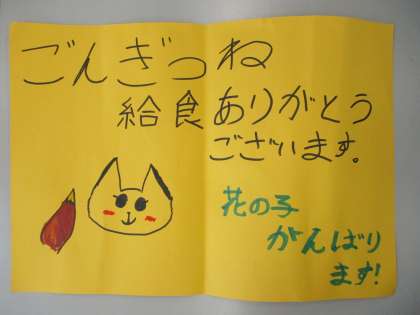 ごんぎつね
給食ありがとう
ございます。
花の子
がんばり
ます!